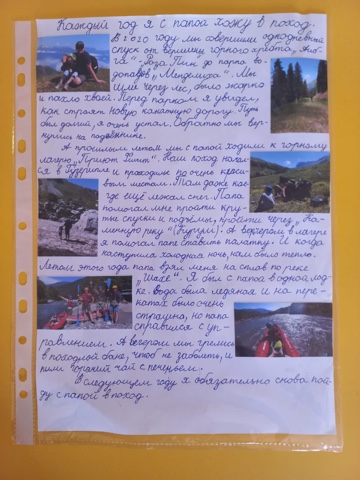 Каждый год я с папой хожу в поход.
В 2020 году мы совершили однодневный
спуск от вершины горного хребта „Аибга“
-Роза Пик до парка водопадов
„Менделиха“. Мы
шли через лес, было жарко
и пахло хвоей. Перед парком я увидел,
как строят новую канатную дорогу. Путь
был долгий, я очень устал. Обратно мы вернулись
на подъемнике.
А прошлым летом мы с папой ходили к горному
лагерю „Приют Фишт“. Наш поход начался
в Гузерипле и проходил по очень красивым
местам. Там даже кое-
где ещё лежал снег. Папа
помогал мне пройти крутые
спуски и подъёмы, пройти через „Каменную
реку“ . А вечером в лагере
я помогал папе ставить палатку. И когда
наступила холодная ночь, нам было тепло.
Летом этого года папа взял меня на сплав по реке
„Шахе“. Я был с папой в одной лодке.
Вода была ледяная и на перекатах
было очень
страшно, но папа
справился с управлением.
А вечером мы грелись
в походной бане, чтоб не заболеть, и
пили горячий чай с печеньем.
В следующем году я обязательно снова пойду
с папой в поход.